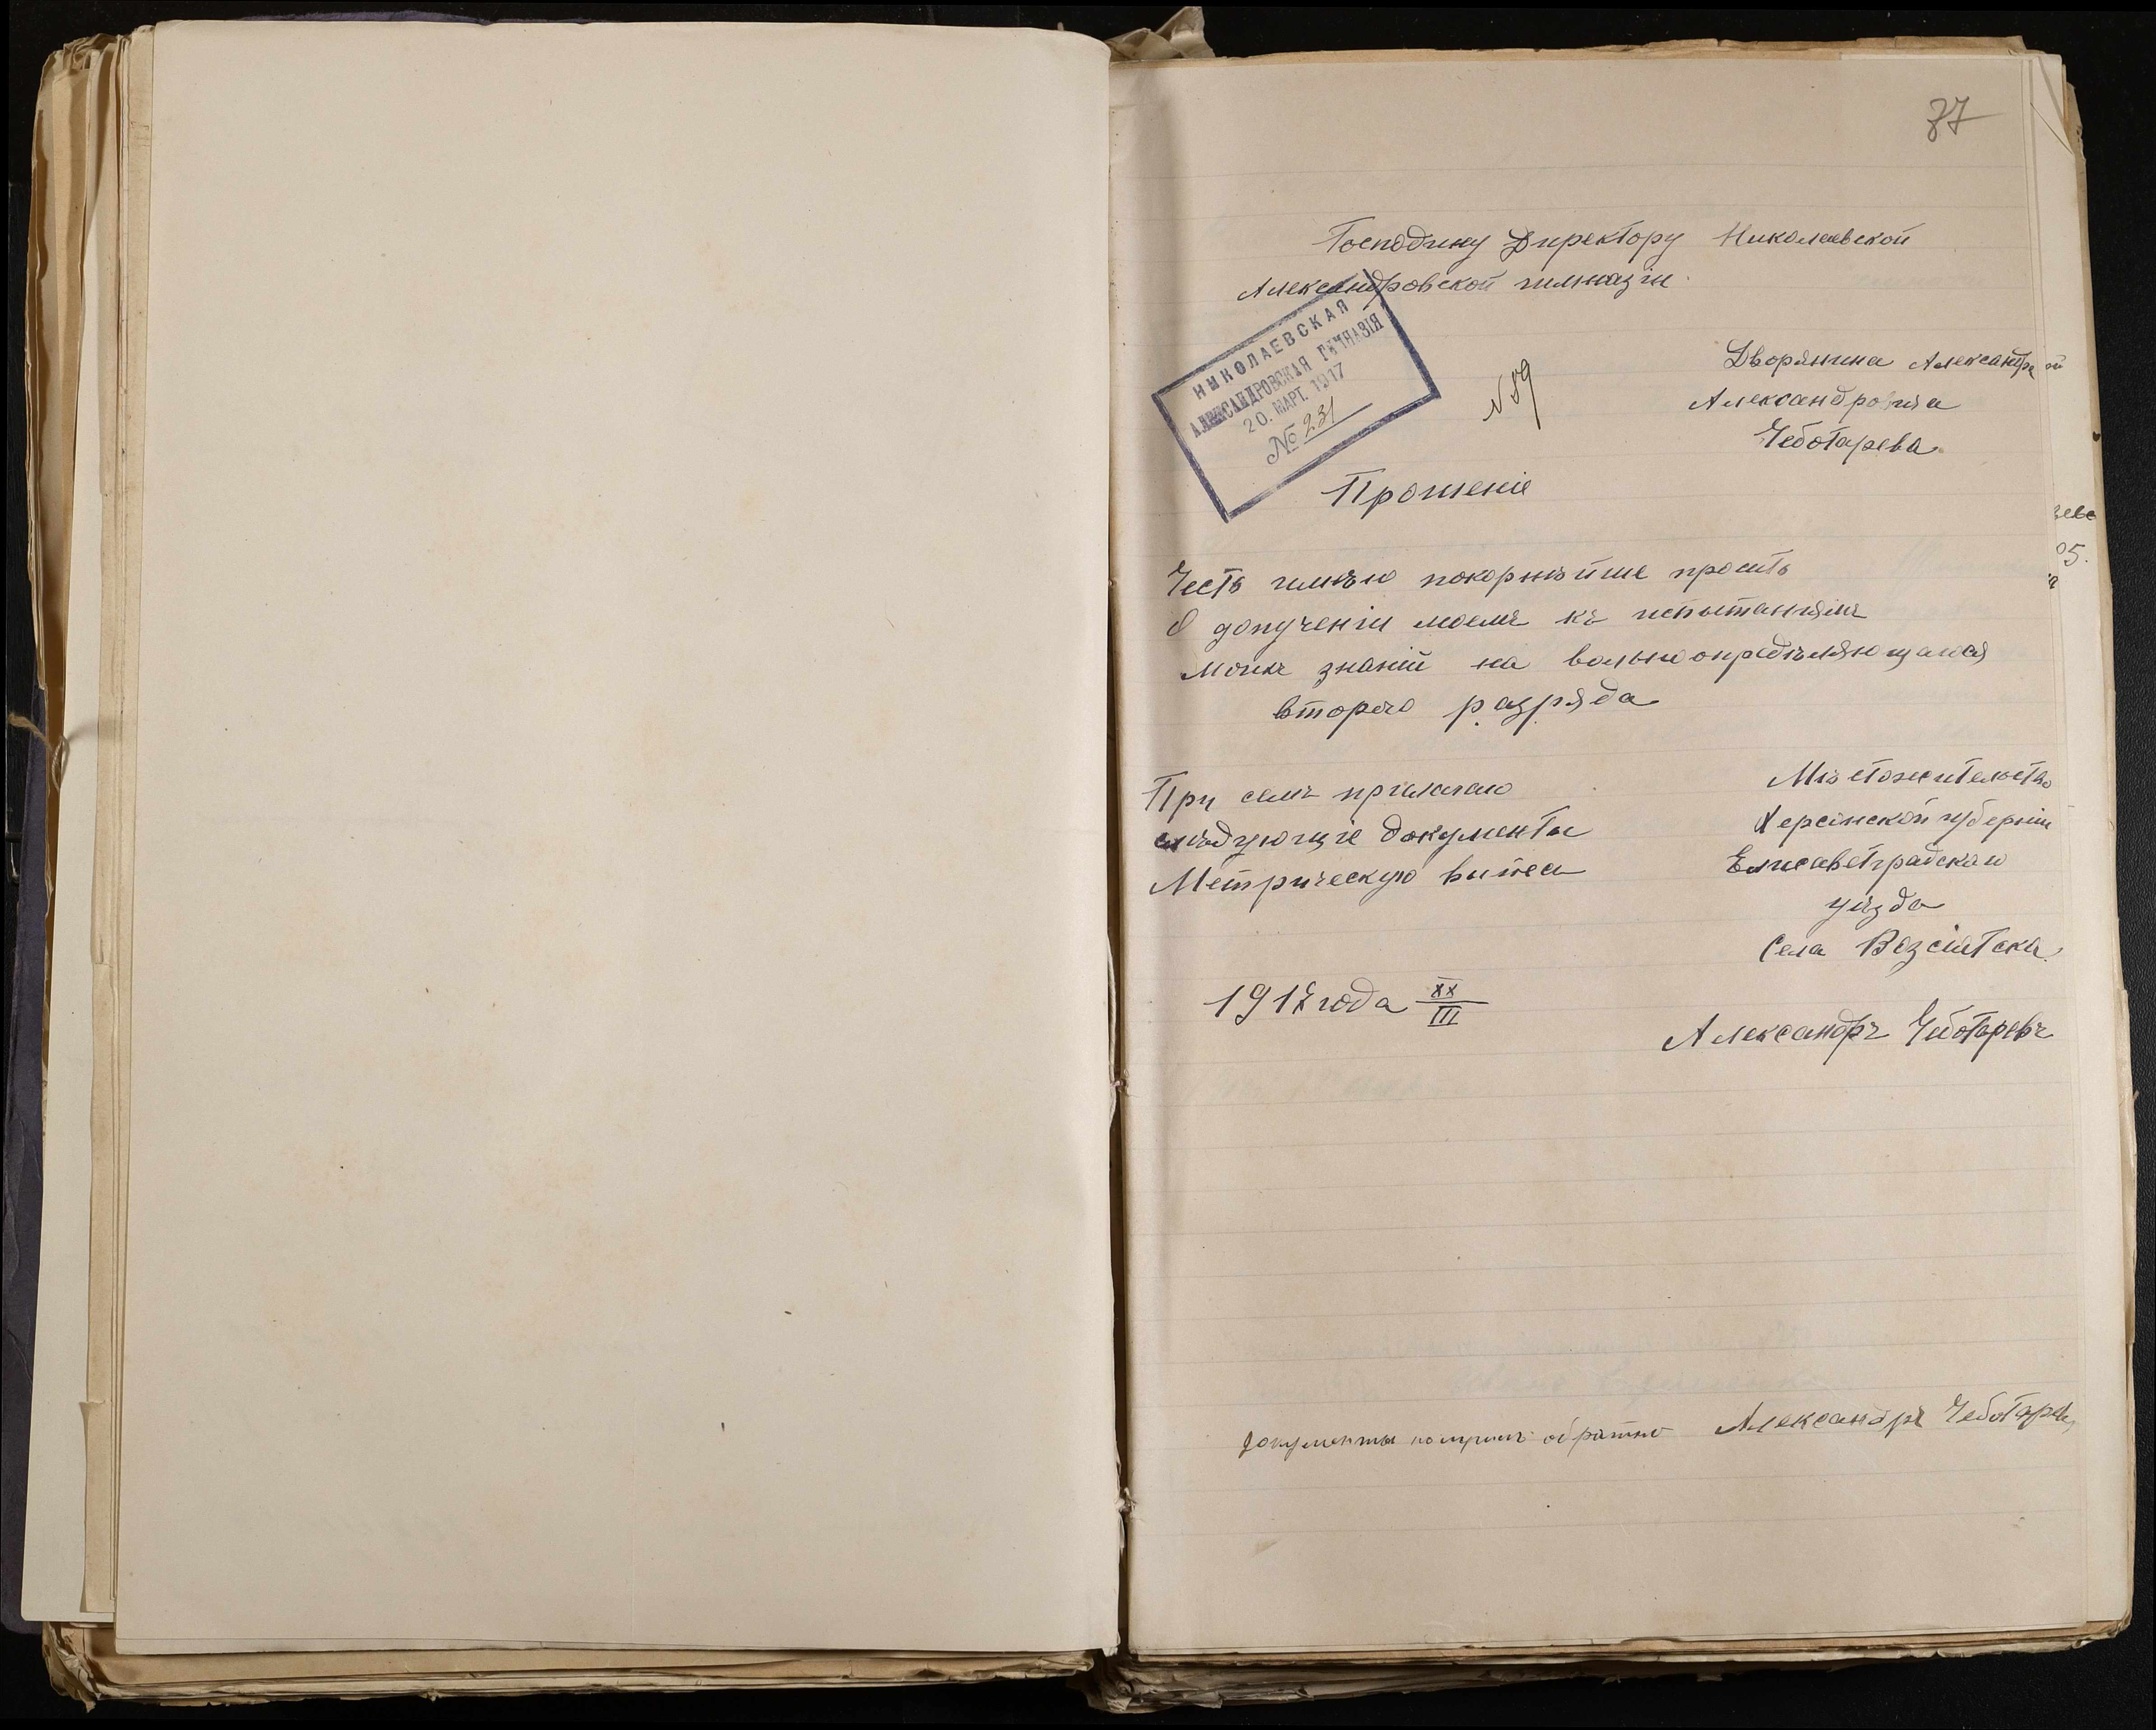 87
Господину Директору Николаевской
Александровской гимназіи.
НИКОЛАЕВСКАЯ
АЛЕКСАНДРОВСКАЯ ГИМНАЗІЯ
20. МАРТ. 1917
№ 231
N 89
Дворянина Александра
Александровича
Чеботарева
Прошеніе
Честь имѣю покорнѣйше просить
О допученіи моемъ къ испытаніямъ
моихъ знаній на вольноопредѣляющагося
второго разряда
При семъ прилагаю
слѣдующіе документы
Метрическую выпес
Мѣстожительство
Херсонской губерніи
Елисаветградскаго
уѣзда
Села Возсіатска
1917 года XX/III
Александръ Чеботаревъ
документы получилъ обратно Александръ Чеботаревъ